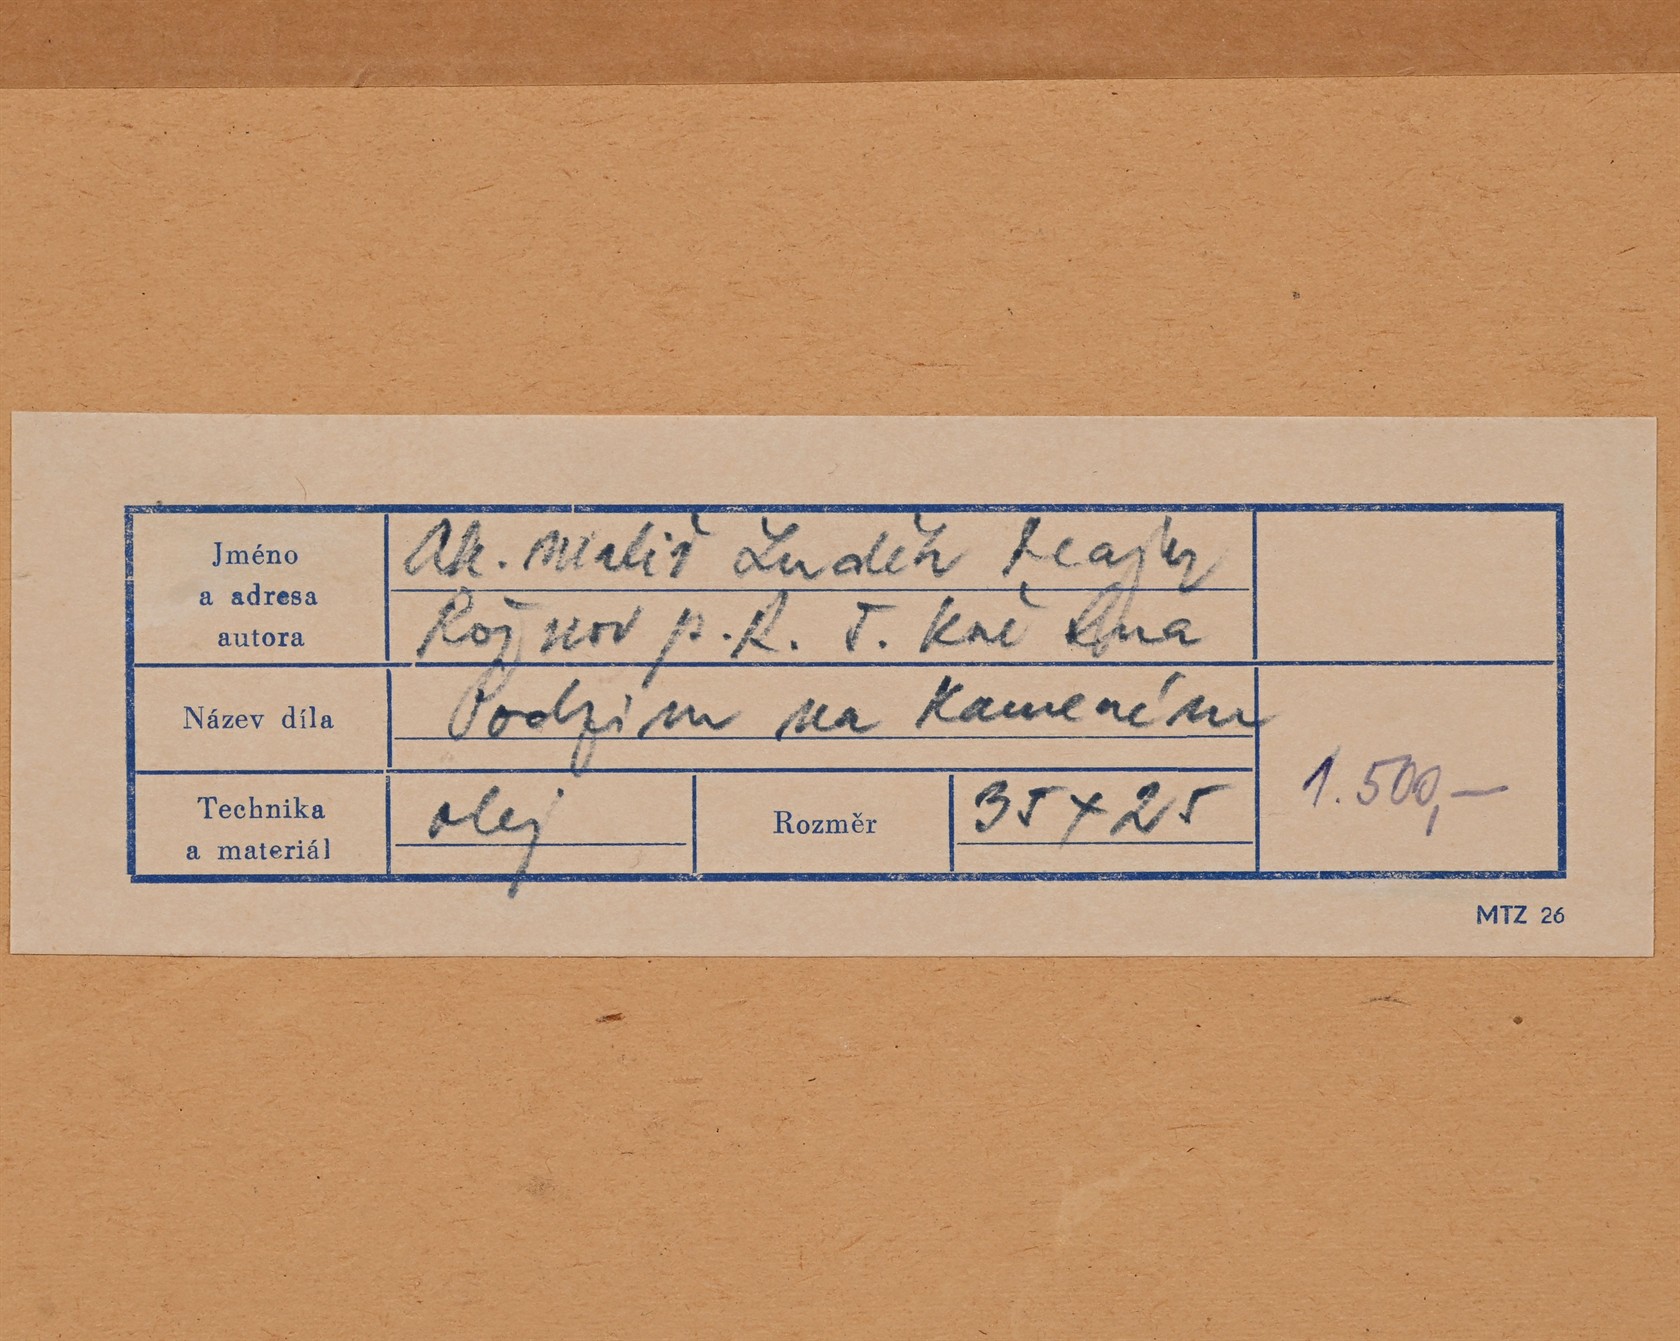 Jméno
a adresa
autora
Ak. Malíř Luděk
Rožnov p. R. T. Kné
Název díla
Podzim na Kameném
Technika
a materiál
olej
Rozměr
35 x 25
1.500,—
MTZ 26